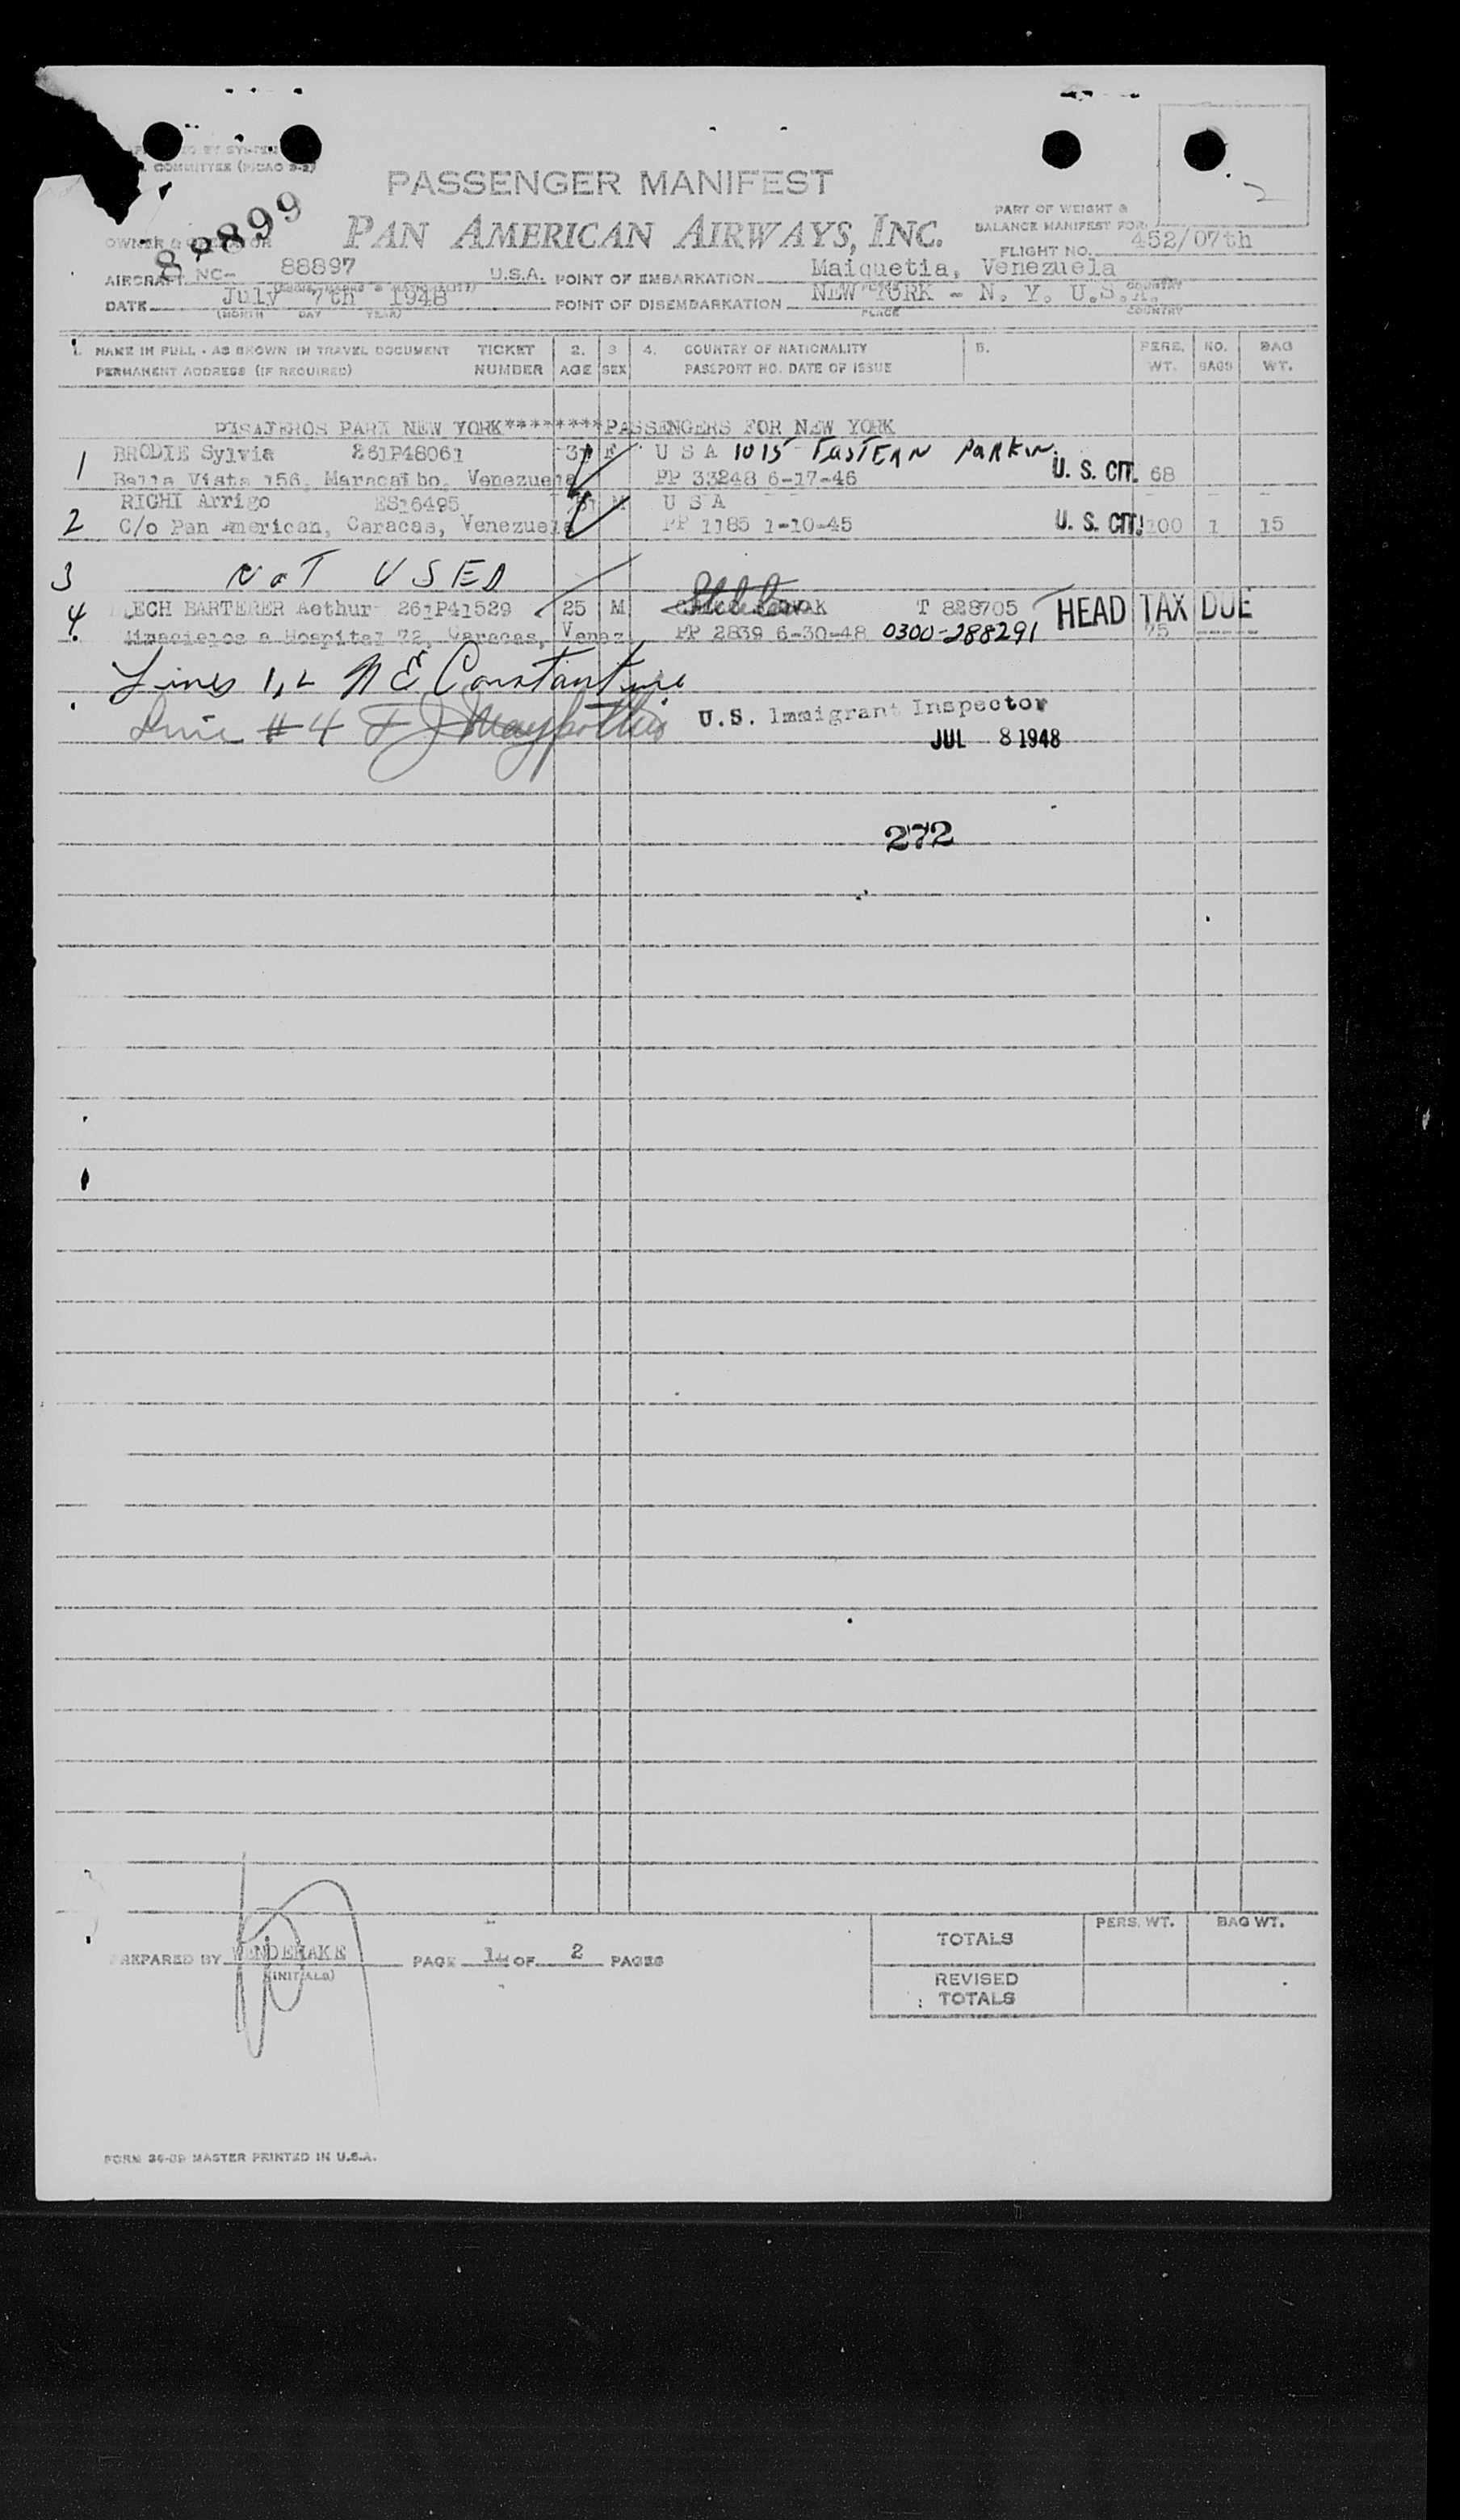 COMMITTEE (PICAO 9-2)
PASSENGER MANIFEST
2
PAN AMERICAN AIRWAYS, INC.
PART OF WEIGHT &
BALANCE MANIFEST FOR
OWNER & OPERATOR
FLIGHT NO. 452/07th
AIRCRAFT NC- 88897 U.S.A. POINT OF EMBARKATION Maiquetia, Venezuela
DATE July 7th 1948 POINT OF DISEMBARKATION NEW YORK - N. Y. U.S.A.
(MONTH DAY YEAR) PLACE COUNTRY
1. NAME IN FULL - AS SHOWN IN TRAVEL DOCUMENT TICKET 2. 3 4. COUNTRY OF NATIONALITY 5. PERS. NO. BAG
PERMANENT ADDRESS (IF REQUIRED) NUMBER AGE SEX PASSPORT NO. DATE OF ISSUE WT. BAGS WT.
PASAJEROS PARA NEW YORK********PASSENGERS FOR NEW YORK
1 BRODIE Sylvia 261P48061 F U S A 1015 EASTERN PARKW.
Bella Vista 156, Maracaibo, Venezuela PP 33248 6-17-46 U. S. CIT. 68
RICHI Arrigo ES16495 M U S A
2 C/o Pan American, Caracas, Venezuela PP 1185 1-10-45 U. S. CIT. 100 1 15
3 NOT USED
4 LECH BARTERER Aethur 261P41529 25 M T 828705 HEAD TAX DUE
a Hospital 72, Caracas, Venez. PP 2839 6-30-48 0300-288291 75
Lines 1,2 N E Constantine
Line #4 F J
U.S. Immigrant Inspector
JUL 8 1948
272
PERS. WT. BAG WT.
TOTALS
PREPARED BY WENDEHAKE PAGE 1 OF 2 PAGES
(INITIALS)
REVISED
TOTALS
FORM 36-09 MASTER PRINTED IN U.S.A.